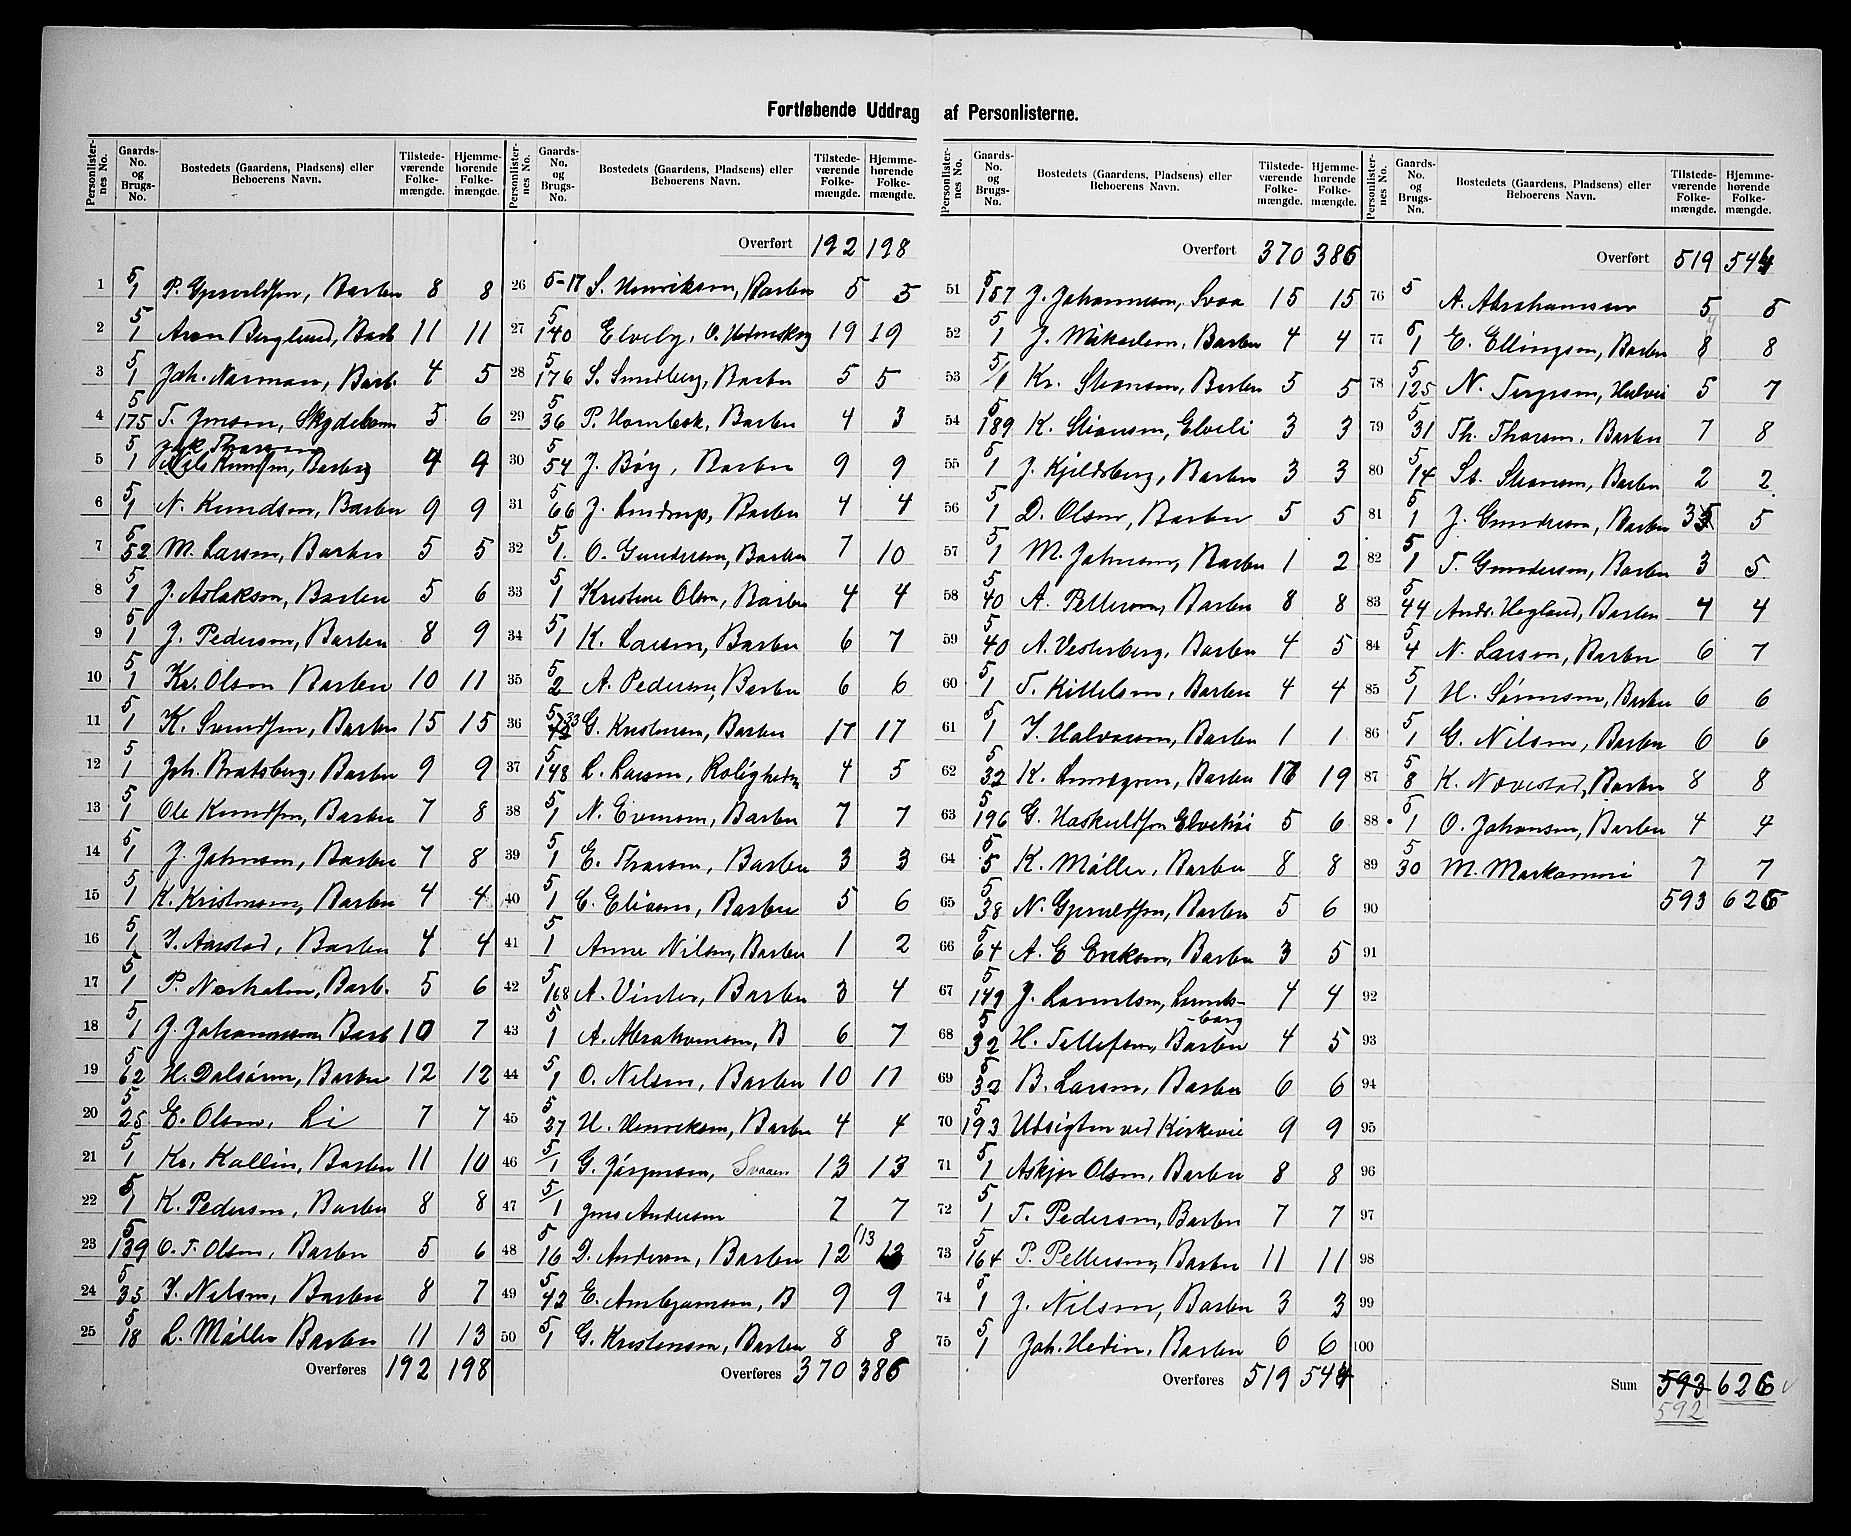 Fortløbende Uddrag af Personlisterne.
Personlisternes No. Gaards-No. og Brugs-No. Bostedets (Gaardens, Pladsens) eller Beboerens Navn. Tilstedeværende Folkemængde. Hjemmehørende Folkemængde.
1 5/1 Barbu 8 8
2 5/1 Aron Berglund, Barb 11 11
3 5/1 Joh. Narman, Barb. 4 5
4 5/175 T. Jensen, Skydeban 5 6
5 5/1 Nils Knudsen, Barbu 4 4
6 5/1 N. Knudsen, Barbu 9 9
7 5/52 M. Larsen, Barbu 5 5
8 5/1 J. Aslaksen, Barbu 5 6
9 5/1 J. Pedersen, Barbu 8 9
10 5/1 Kr. Olsen Barbu 10 11
11 5/1 K. Svendsen, Barbu 15 15
12 5/1 Joh. Bratsberg, Barbu 9 9
13 5/1 Ole Knudsen, Barbu 7 8
14 5/1 J. Johnsen, Barbu 7 8
15 5/1 K. Kristensen, Barbu 4 4
16 5/1 Aarstad, Barbu 4 4
17 5/1 P. Næsholm, Barb. 5 6
18 5/1 J. Johannesen Barb 10 7
19 5/62 H. Dalsøren, Barbu 12 12
20 5/25 E. Olsen, Li 7 7
21 5/1 Kr. Kallin, Barbu 11 10
22 5/1 K. Pedersen, Barbu 8 8
23 5/139 O. T. Olsen, Barbu 5 6
24 5/35 Nilsen, Barbu 8 7
25 5/18 L. Møller Barbu 11 13
Overføres 192 198
Personlisternes No. Gaards-No. og Brugs-No. Bostedets (Gaardens, Pladsens) eller Beboerens Navn. Tilstedeværende Folkemængde. Hjemmehørende Folkemængde.
Overført 192 198
26 5-17 S. Henriksen, Barbu 5 5
27 5/140 Elveby, O. 19 19
28 5/176 S. Sundberg, Barbu 5 5
29 5/36 P. Hornbek, Barbu 4 3
30 5/54 J. Bøy, Barbu 9 9
31 5/66 J. Lindrup, Barbu 4 4
32 5/1. O. Gundersen, Barbu 7 10
33 5/1 Kristine Olsen, Barbu 4 4
34 5/1 K. Larsen, Barbu 6 7
35 5/2 A. Pedersen, Barbu 6 6
36 5/33 G. Kristensen, Barbu 17 17
37 5/148 L. Larsen, Roligheden 4 5
38 5/1 N. Evensen, Barbu 7 7
39 5/1 E. Thorsen, Barbu 3 3
40 5/1 E. Eliasen, Barbu 5 6
41 5/1 Anne Nilsen, Barbu 1 2
42 5/168 A. Vinter, Barbu 3 4
43 5/1 A. Abrahamsen, B 6 7
44 5/1 O. Nilsen, Barbu 10 11
45 5/37 H. Henriksen, Barbu 4 4
46 5/1 G. Jørgensen, Svaaen 13 13
47 5/1 Jens Andersen 7 7
48 5/16 D. Andersen, Barbu 12 (13 13
49 5/42 E. Ambjørnsen, B 9 9
50 5/1 G. Kristensen, Barbu 8 8
Overføres 370 386
Personlisternes No. Gaards-No. og Brugs-No. Bostedets (Gaardens, Pladsens) eller Beboerens Navn. Tilstedeværende Folkemængde. Hjemmehørende Folkemængde.
Overført 370 386
51 5/157 J. Johannesen, Svaa 15 15
52 5/1 J. Mikaelsen, Barbu 4 4
53 5/1 Kr. Steensen, Barbu 5 5
54 5/189 K. Steensen, Elveli 3 3
55 5/1 J. Kjeldsberg, Barbu 3 3
56 5/1 D. Olsen, Barbu 5 5
57 5/1 M. Johnsen, Barbu 1 2
58 5/40 A. Pettersen, Barbu 8 8
59 5/40 A. Vesterberg, Barbu 4 5
60 5/1 T. Kittelsen, Barbu 4 4
61 5/1 Halvorsen, Barbu 1 1
62 5/32 K. Lundgren, Barbu 16 19
63 5/196 G. Haskuldsen 5 6
64 5/5 K. Møller, Barbu 8 8
65 5/38 Barbu 5 6
66 5/64 A. E Eriksen, Barbu 3 5
67 5/149 J. Laurntsen, Lunds-
-borg 4 4
68 5/32 H. Tellefsen, Barbu 4 5
69 5/32 B. Larsen, Barbu 6 6
70 5/193 Udsigten ved Kirkevei 9 9
71 5/1 Askjer Olsen, Barbu 8 8
72 5/1 T. Pedersen, Barbu 7 7
73 5/164 P. Pettersen, Barbu 11 11
74 5/1 J. Nilsen, Barbu 3 3
75 5/1 Joh. Hedin, Barbu 6 6
Overføres 519 544
Personlisternes No. Gaards-No. og Brugs-No. Bostedets (Gaardens, Pladsens) eller Beboerens Navn. Tilstedeværende Folkemængde. Hjemmehørende Folkemængde.
Overført 519 544
76 5 A. Abrahamsen 5 5
77 5/1 E. Ellingsen, Barbu 8 8
78 5/125 N. Terjesen, 5 7
79 5/31 Th. Thorsen, Barbu 7 8
80 5/14 St. Steensen, Barbu 2 2
81 5/1 J. Gundersen, Barbu 3 5
82 5/1 T. Gundersen, Barbu 3 5
83 5/44 Andr. Hegland, Barbu 4 4
84 5/4 N. Larsen, Barbu 6 7
85 5/1 H. Sørensen, Barbu 6 6
86 5/1 G. Nilsen, Barbu 6 6
87 5/8 K. Nævestad, Barbu 8 8
88 5/1 O. Johansen, Barbu 4 4
89 5/30 M. 7 7
90 593 626
91
92
93
94
95
96
97
98
99
100
Sum 593 626
592